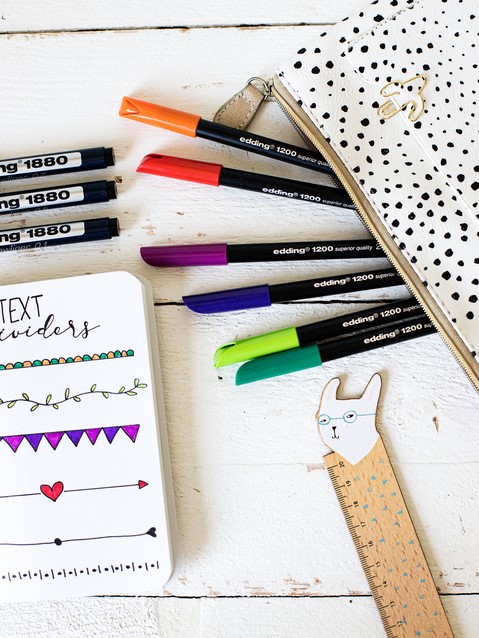 edding® 1200 superior quality
edding® 1200 superior
ng® 1880
ng® 1880
ng® 1880
edding® 1200 superior quality
edding® 1200 superior
edding® 1200 superior
edding® 1200 superior
TEXT
ividers